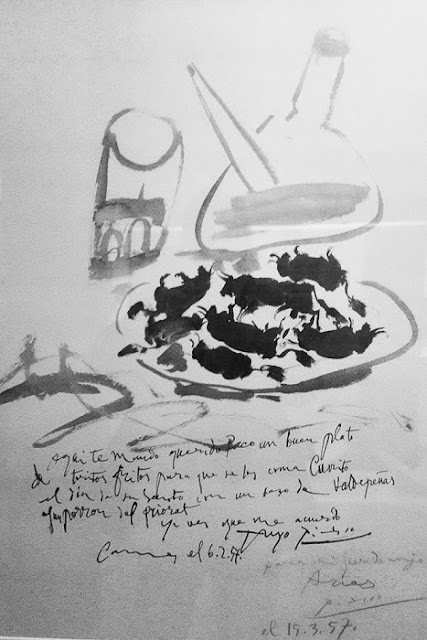 Aqui te mando querido Paco un buen plato
de toritos fritos para que se los coma Currito
el dia de su Santo con un vaso de Valdepeñas
o un porron del priorat
Ya ves que me acuerdo
Tuyo Picasso
Cannes el 6.2.57.
para mi
Arias
Picasso
el 15.3.57.